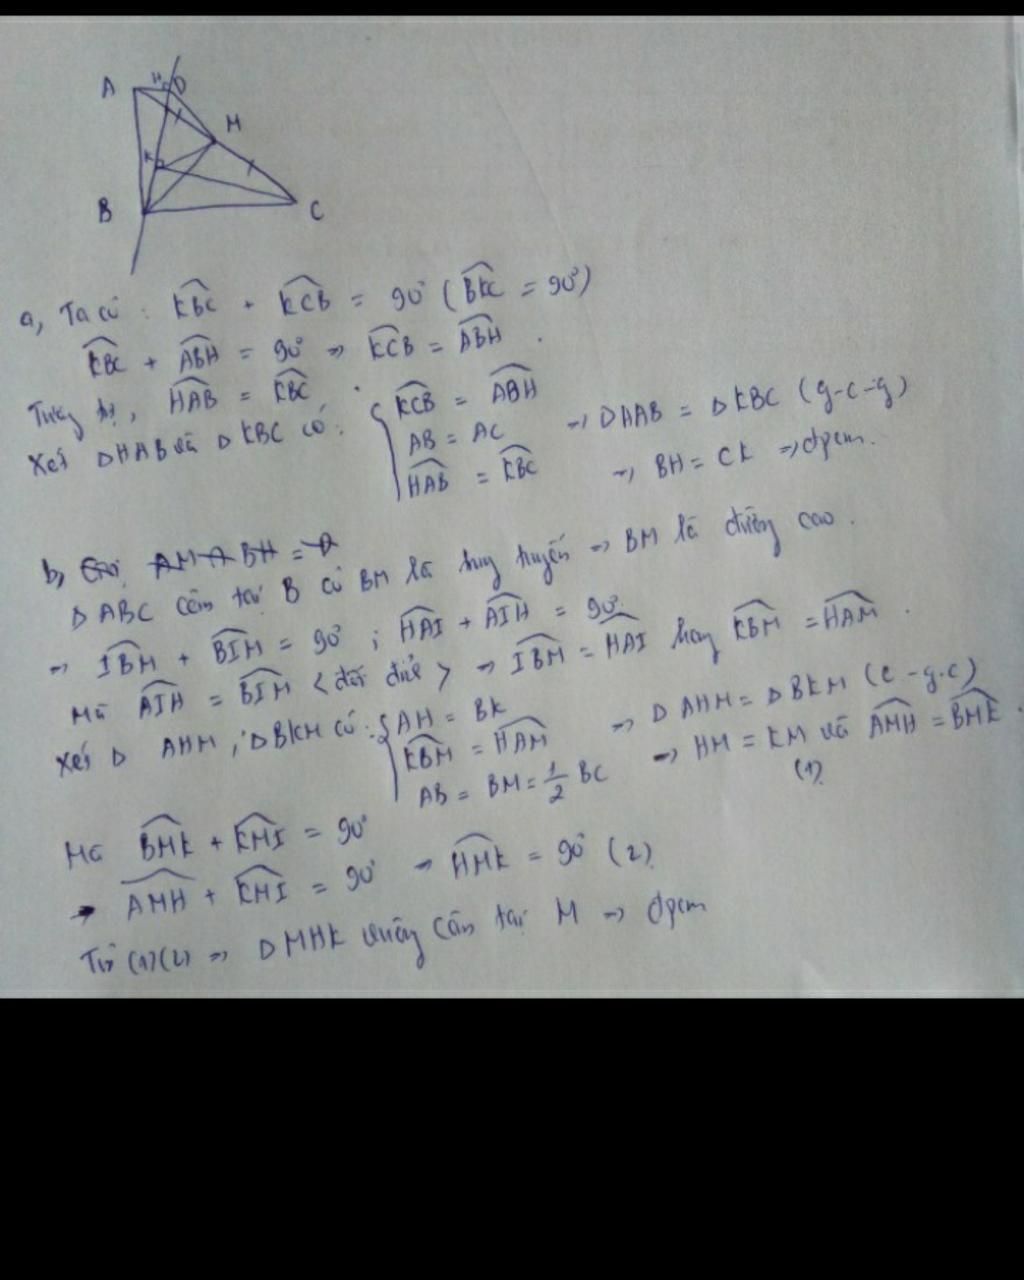 A
H
D
M
K
B
C
a, Ta có : KBC + KCB = 90° ( BKC = 90°)
KBC + ABH = 90° => KCB = ABH .
Tương tự, HAB = KBC .
Xét ΔHAB và ΔKBC có : { KCB = ABH
AB = AC => ΔHAB = ΔKBC (g-c-g)
HAB = KBC => BH = CK => đpcm.
b, Gọi AM ∩ BH =
ΔABC cân tại B có BM là trung tuyến => BM là đường cao .
=> IBM + BIM = 90° ; HAI + AIH = 90°.
Mà AIH = BIM <đối đỉnh> => IBM = HAI hay KBM = HAM .
Xét Δ AHM , ΔBKM có : { AH = BK
KBM = HAM => Δ AHM = Δ BKM (c-g.c)
AB = BM = 1/2 BC => HM = KM và AMH = BMK .
(1)
Mà BMK + KMI = 90°
=> AMH + KMI = 90° => HMK = 90° (2)
Từ (1)(2) => ΔMHK vuông cân tại M => đpcm